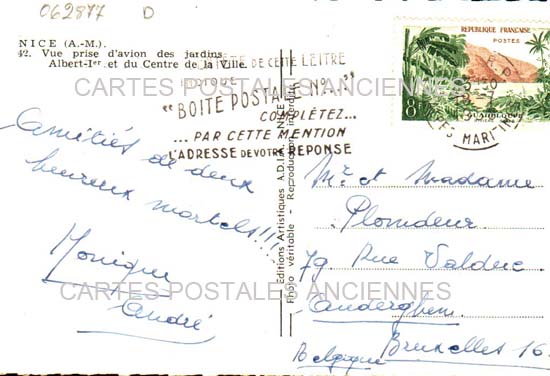 062877 D
NICE (A.-M.).
42. Vue prise d'avion des jardins
Albert-Ier et du Centre de la Ville.
DE CETTE LETTRE
INDIQUE
"BOITE POSTALE N°..."
COMPLÉTEZ...
...PAR CETTE MENTION
L'ADRESSE DE VOTRE RÉPONSE
REPUBLIQUE FRANÇAISE
POSTES
8F
GUADELOUPE
MARITIMES
CARTES POSTALES ANCIENNES
Amitiés de deux
heureux mortels!!!
Monique
André
CARTES POSTALES ANCIENNES
Editions Artistiques A.D.I.A. - NICE
Photo véritable - Reproduction interdite
Mr et Madame
Plomdeur
79 Rue Valduc
Auderghem
Bruxelles 16
Belgique